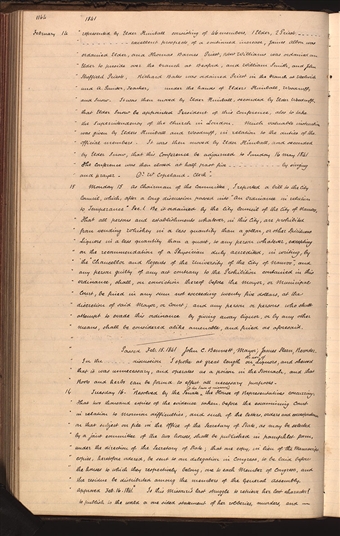 1166 1841
February 14 represented by Elder Kimball consisting of 46 members, 1 Elder, 2 Priests
excellent prospect of a continued increase, James Albon was
ordained Elder, and Thomas Barnes Priest, Wm Williams was ordained an
Elder to preside over the branch at Bedford, and William Smith, and John
Sheffield Priest, Richard Bates was ordained Priest in the branch at Woolwich
and A. Painter, Teacher, under the hands of Elders Kimball, Woodruff,
and Snow. It was then moved by Elder Kimball, seconded by Elder Woodruff,
that Elder Snow be appointed President of this Conference, also to take
the Superintendency of the church in London. Much valuable instruction
was given by Elders Kimball and Woodruff, in relation to the duties of the
official members. It was then moved by Elder Kimball, and seconded
by Elder Snow, that this Conference be adjourned to Sunday 16 May 1841
The Conference was then closed at half past five by singing
and prayer. Dr. W. Copeland Clerk.
15 Monday 15 As Chairman of the Committee, I reported a bill to the City
Council, which, after a long discussion passed into "An Ordinance in relation
to Temperance" Sec. 1. Be it ordained by the City Council of the City of Nauvoo,
That all persons and establishments whatever, in this City, are prohibited
from vending Whiskey in a less quantity than a gallon, or other Spirituous
Liquors in a less quantity than a quart, to any person whatever, excepting
on the recommendation of a Physician duly accredited, in writing, by
the Chancellor and Regents of the University of the City of Nauvoo; and
any person guilty of any act contrary to the Prohibition contained in this
ordinance, shall, on conviction thereof before the Mayor, or Municipal
Court, be fined in any sum not exceeding twenty five dollars, at the
discretion of said Mayor, or Court; and any person or persons who shall
attempt to evade this ordinance by giving away liquor, or by any other
means, shall be considered alike amenable, and fined as aforesaid.
Passed Feb. 15. 1841. John C. Bennett, Mayor; James Sloan, Recorder.
In the discussion I spoke at great length on the use of liquors, and showed
that it was unnecessary, and operates as a poison in the stomach, and that
Roots and herbs can be found to effect all necessary purposes.
16 Tuesday 16 Resolved by the Senate, the House of Representatives concurring,
That two thousand copies of the evidence taken before the examining Court
in relation to Mormon difficulties, and such of the letters, orders and correspondence
as that subject on file in the office of the Secretary of State, as may be selected
by a joint committee of the two houses shall be published in pamphlet form,
under the direction of the Secretary of State; that one copy, in lieu of the Manuscript
copies heretofore ordered, be sent to our delegation in Congress, to be laid before
the houses to which they respectively belong, one to each Member of Congress, and
the residue be distributed among the members of the general assembly.
approved Feb. 16. 1841" Is this Missouri's last struggle to retrieve her lost character?
to publish to the world a one sided statement of her robberies, murders and